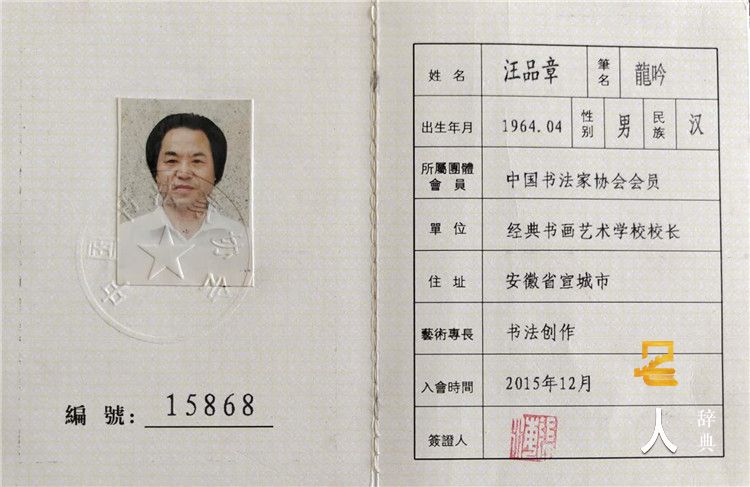 編 號: 15868
姓 名 汪品章 筆名 龍吟
出生年月 1964.04 性别 男 民族 汉
所屬團體會 員 中国书法家协会会员
單 位 经典书画艺术学校校长
住 址 安徽省宣城市
藝術專長 书法创作
入會時間 2015年12月
簽證人
人 辞典